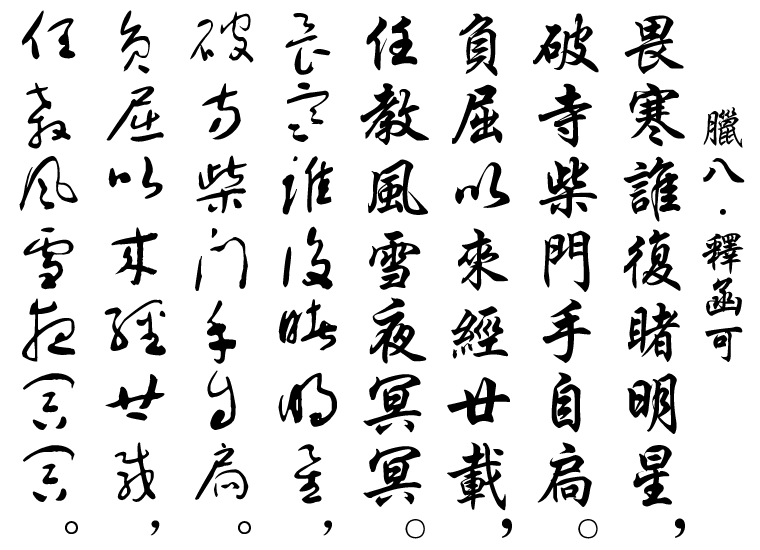 臘八．釋函可
畏寒誰復睹明星，
破寺柴門手自扃。
負屈以來經廿載，
任教風雪夜冥冥。
畏寒誰復睹明星，
破寺柴門手自扃。
負屈以來經廿載，
任教風雪夜冥冥。